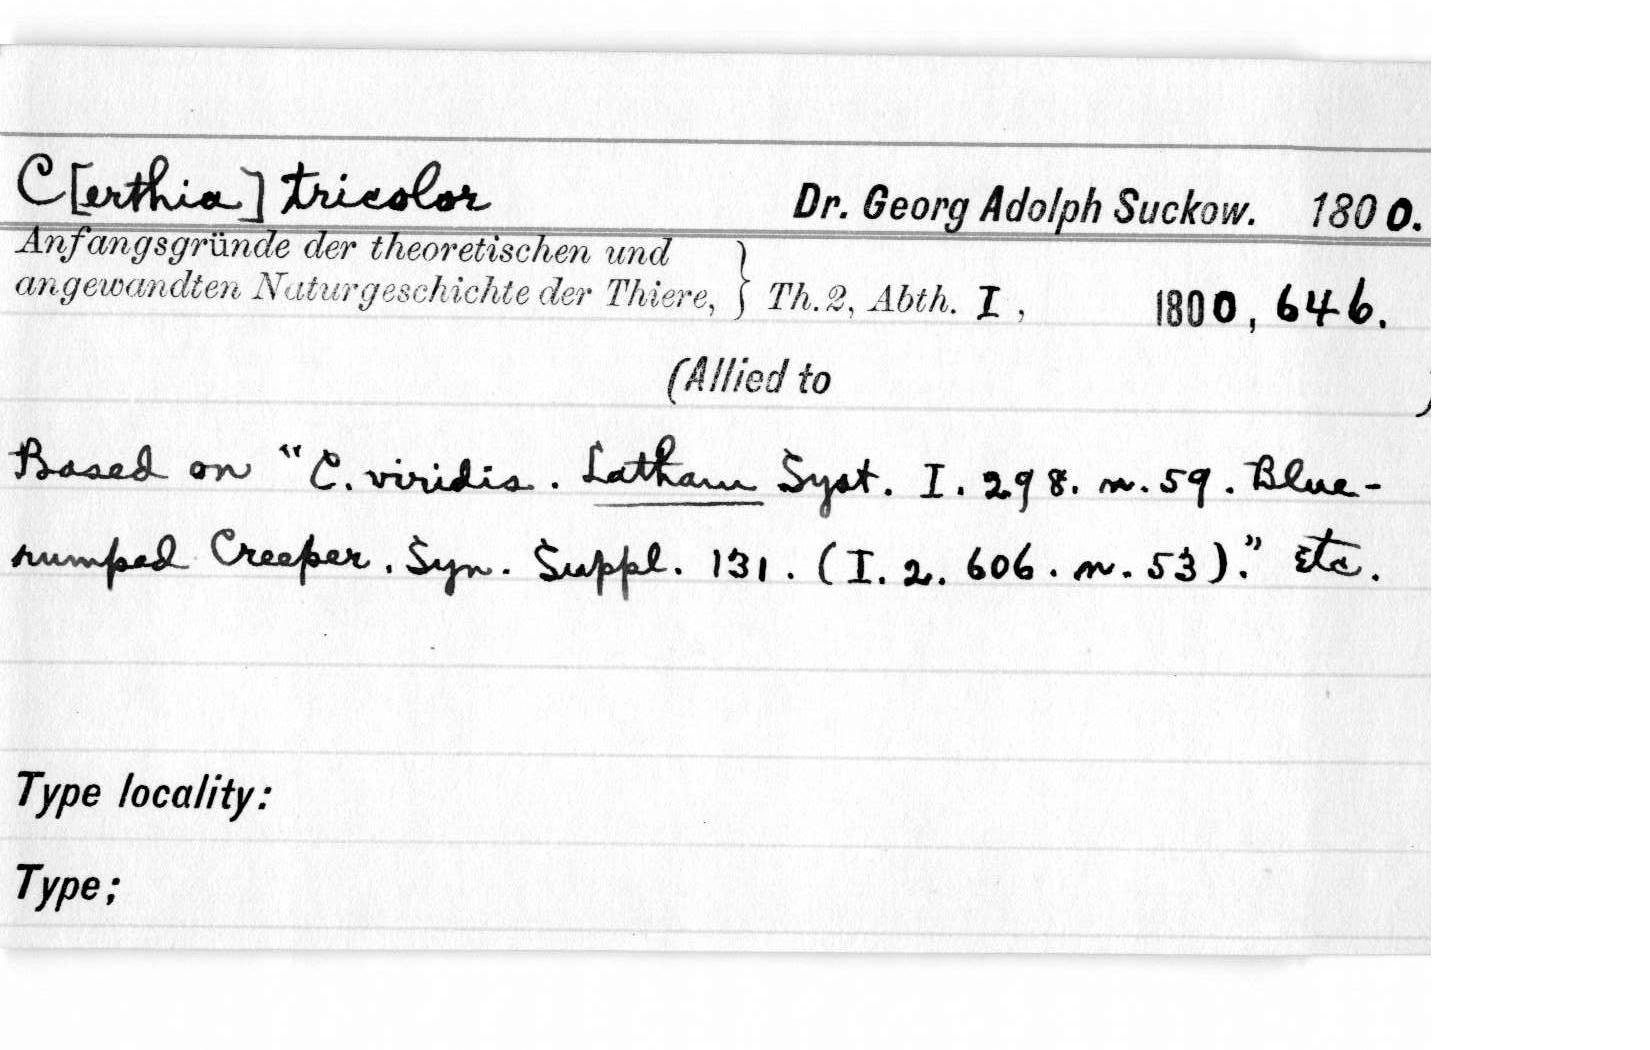 C[erthia] tricolor Dr. Georg Adolph Suckow. 1800.
Anfangsgründe der theoretischen und
angewandten Naturgeschichte der Thiere, } Th. 2, Abth. I, 1800, 646.
(Allied to )
Based on "C. viridis. Latham Syst. I. 298. n. 59. Blue-
rumped Creeper. Syn. Suppl. 131. (I. 2. 606. n. 53)." Etc.
Type locality:
Type;